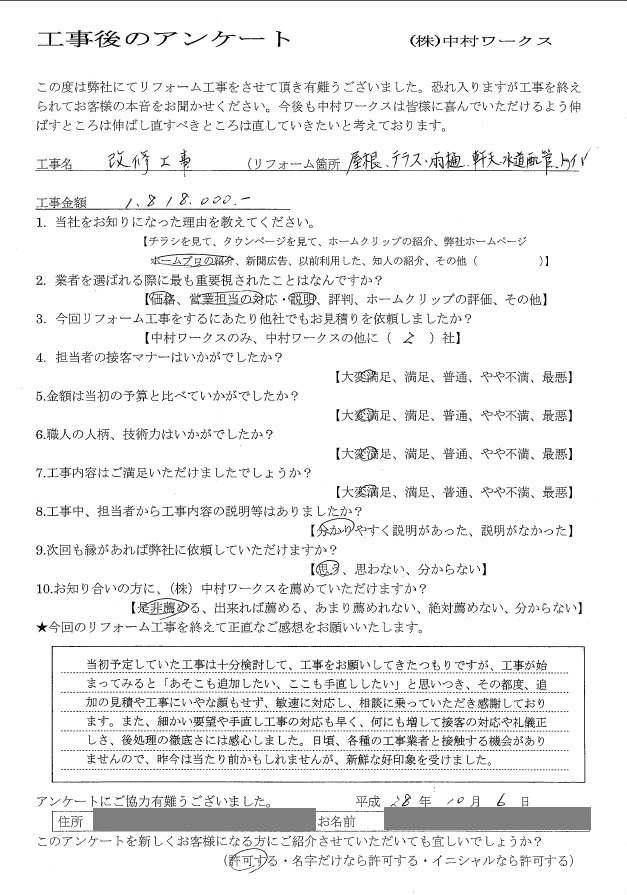 工事後のアンケート　（株）中村ワークス
この度は弊社にてリフォーム工事をさせて頂き有難うございました。恐れ入りますが工事を終え
られてお客様の本音をお聞かせください。今後も中村ワークスは皆様に喜んでいただけるよう伸
ばすところは伸ばし直すべきところは直していきたいと考えております。
工事名　改修工事　（リフォーム箇所　屋根、テラス・雨樋、軒天、水道配管、トイレ
工事金額　1,818,000.-
1. 当社をお知りになった理由を教えてください。
【チラシを見て、タウンページを見て、ホームクリップの紹介、弊社ホームページ
ホームプロの紹介、新聞広告、以前利用した、知人の紹介、その他（　　　　）】
2. 業者を選ばれる際に最も重要視されたことはなんですか？
【価格、営業担当の対応・説明、評判、ホームクリップの評価、その他】
3. 今回リフォーム工事をするにあたり他社でもお見積りを依頼しましたか？
【中村ワークスのみ、中村ワークスの他に（ 2 ）社】
4. 担当者の接客マナーはいかがでしたか？
【大変満足、満足、普通、やや不満、最悪】
5.金額は当初の予算と比べていかがでしたか？
【大変満足、満足、普通、やや不満、最悪】
6.職人の人柄、技術力はいかがでしたか？
【大変満足、満足、普通、やや不満、最悪】
7.工事内容はご満足いただけましたでしょうか？
【大変満足、満足、普通、やや不満、最悪】
8.工事中、担当者から工事内容の説明等はありましたか？
【分かりやすく説明があった、説明がなかった】
9.次回も縁があれば弊社に依頼していただけますか？
【思う、思わない、分からない】
10.お知り合いの方に、（株）中村ワークスを薦めていただけますか？
【是非薦める、出来れば薦める、あまり薦めれない、絶対薦めない、分からない】
★今回のリフォーム工事を終えて正直なご感想をお願いいたします。
当初予定していた工事は十分検討して、工事をお願いしてきたつもりですが、工事が始
まってみると「あそこも追加したい、ここも手直ししたい」と思いつき、その都度、追
加の見積や工事にいやな顔もせず、敏速に対応し、相談に乗っていただき感謝しており
ます。また、細かい要望や手直し工事の対応も早く、何にも増して接客の対応や礼儀正
しさ、後処理の徹底さには感心しました。日頃、各種の工事業者と接触する機会があり
ませんので、昨今は当たり前かもしれませんが、新鮮な好印象を受けました。
アンケートにご協力有難うございました。　平成 28 年 10 月 6 日
住所　お名前
このアンケートを新しくお客様になる方にご紹介させていただいても宜しいでしょうか？
（許可する・名字だけなら許可する・イニシャルなら許可する）